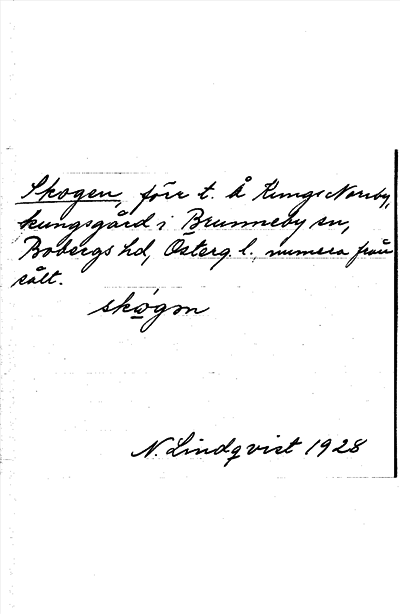 Skogen, förr t. å Kungs Norrby,
kungsgård i Brunneby sn,
Bobergs hd, Österg. l., numera från
sålt.
skωgən
N. Lindqvist 1928